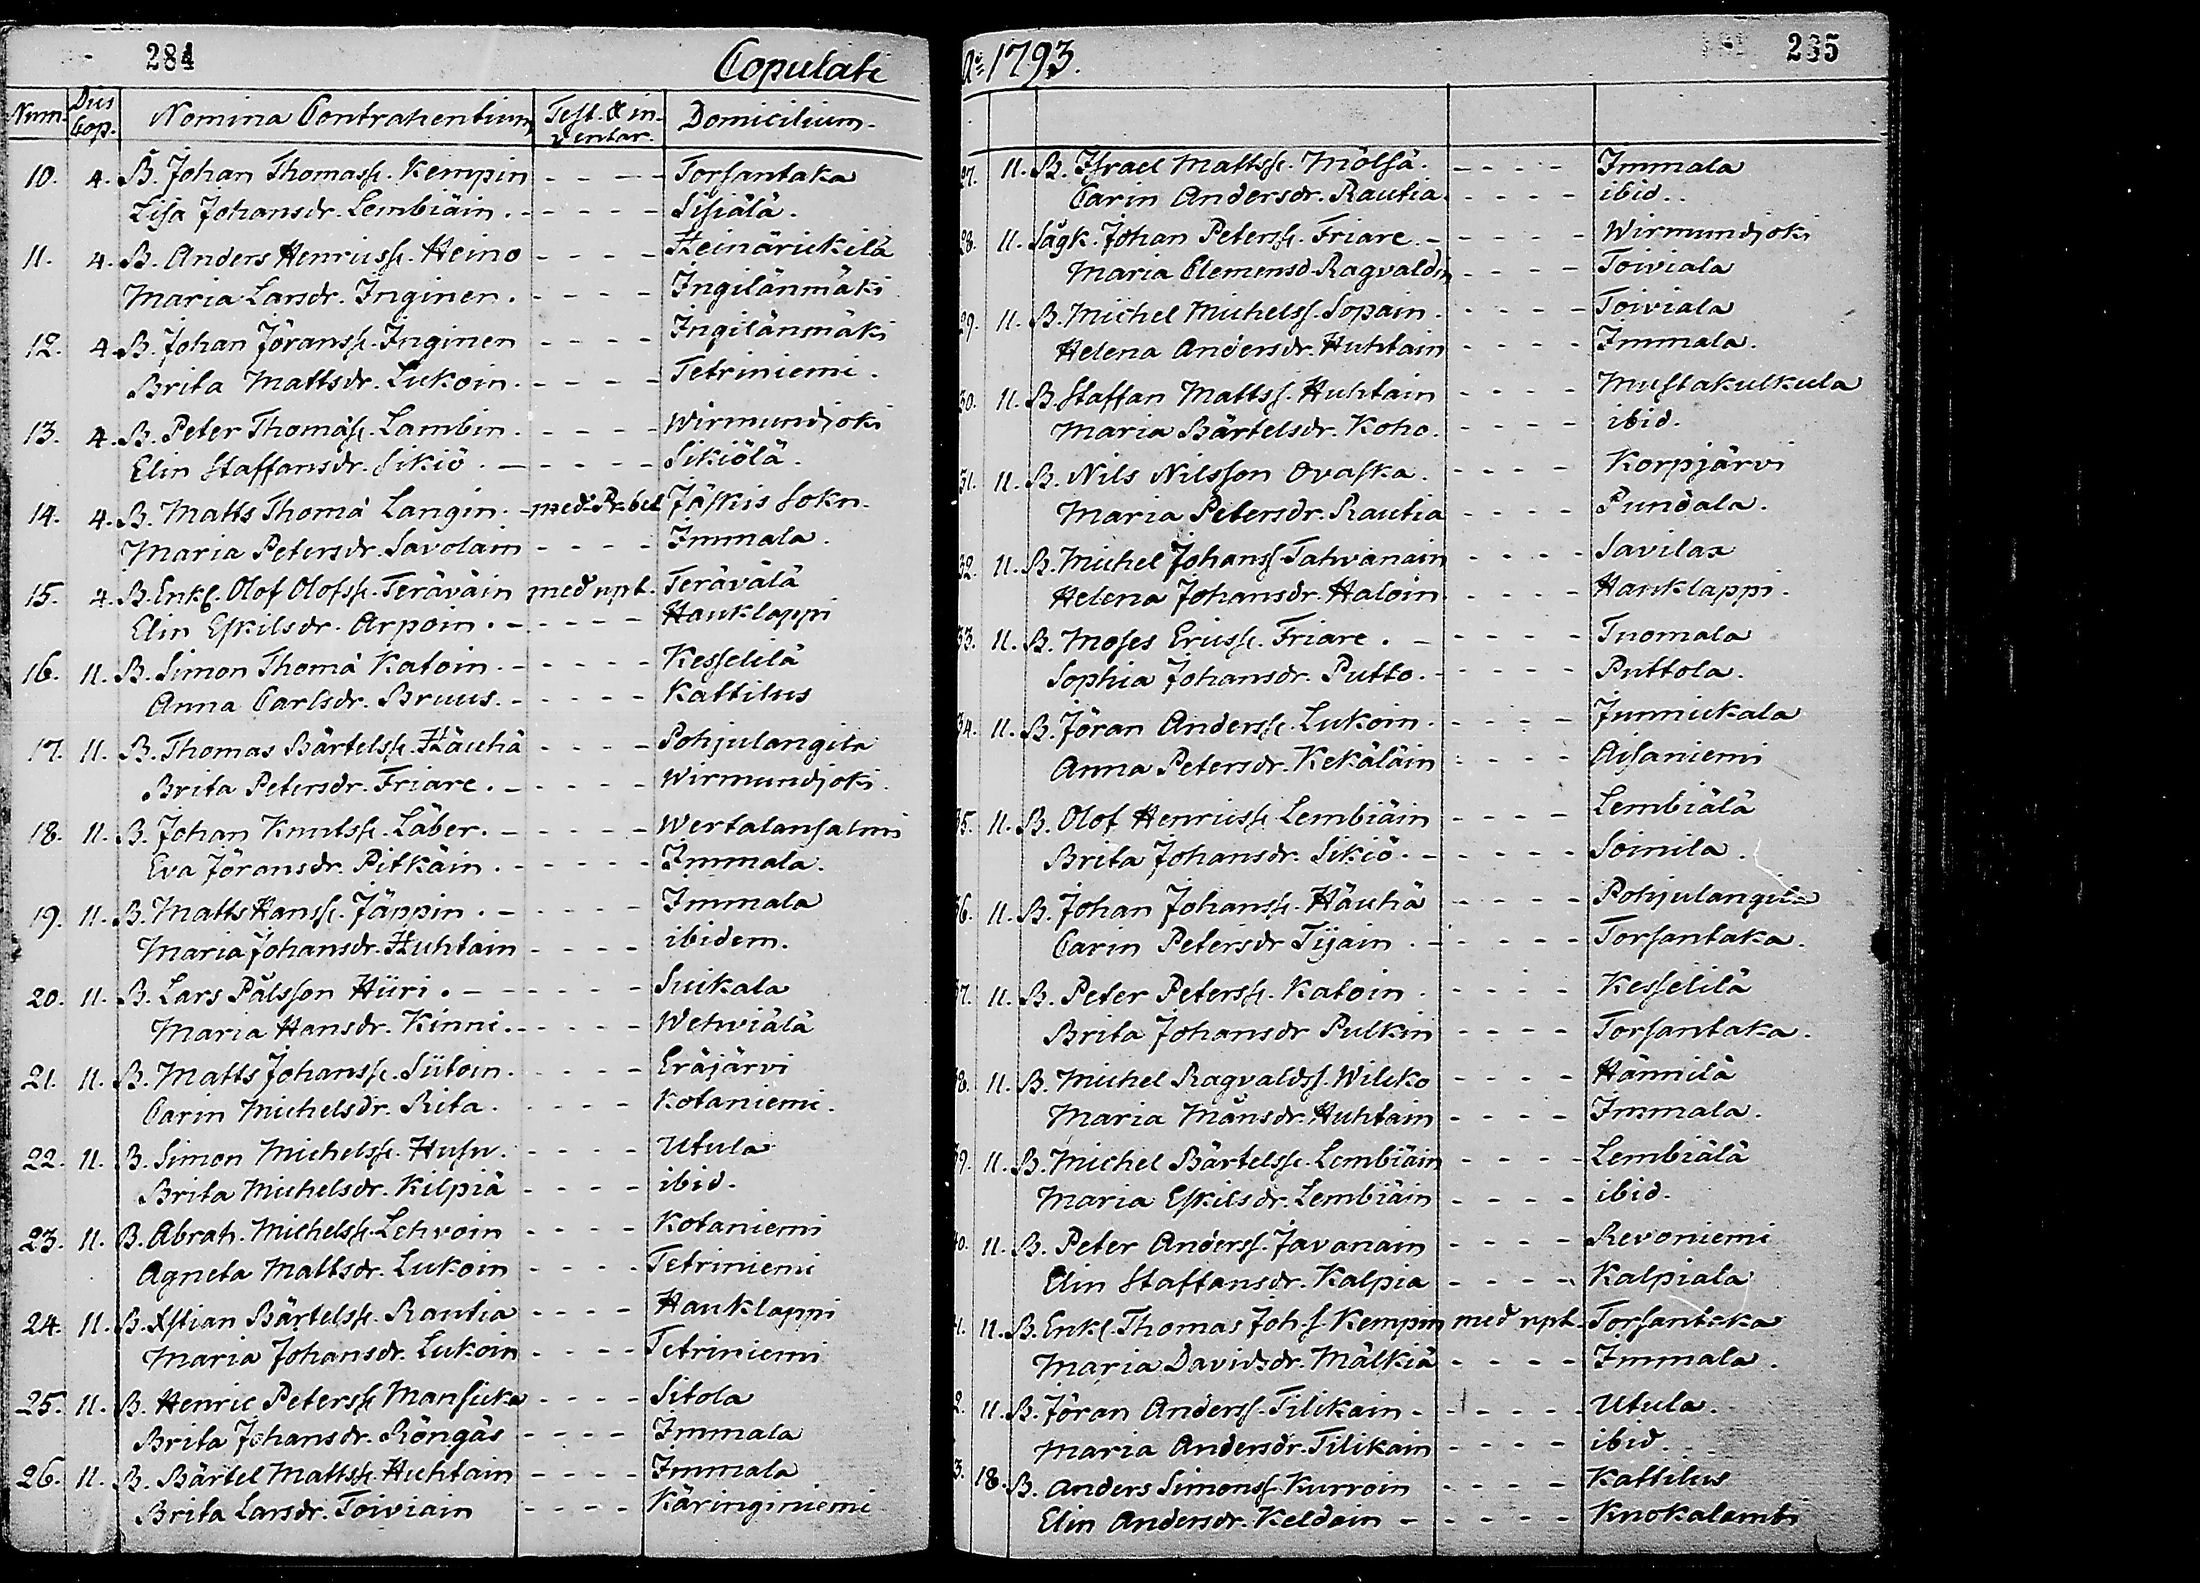 284
Copulati
Num. Dies Cop. Nomina Contrahentium Test. & inventar. Domicilium.
10. 4. B. Johan Thomass. Kempin - - - - Torsantaka
Lisa Johansdr. Lembiäin. - - - - Sisiälä.
11. 4. B. Anders Henricss. Heino - - - - Heinärickilä
Maria Larsdr. Inginen. - - - - Ingilänmäki
12. 4. B. Johan Jöranss. Inginen - - - - Ingilänmäki
Brita Mattsdr. Lukoin. - - - - Tetriniemi.
13. 4. B. Peter Thomæss. Lambin. - - - - Wirmundjoki
Elin Staffansdr. Sikiö. - - - - Sikiölä.
14. 4. B. Matts Thomæ Langin. - med Pr.bet. Jäskis Sokn.
Maria Petersdr. Savolain - - - - Immala.
15. 4. B. Enkl. Olof Olofss. Teräväin med upt. Terävälä
Elin Eskilsdr. Arpoin. - - - - Hauklappi
16. 11. B. Simon Thomæ Katoin. - - - - Kesselilä
Anna Carlsdr. Bruus. - - - - Kattilus
17. 11. B. Thomas Bärtelss. Häuhä - - - - Pohjulangila
Brita Petersdr. Friare. - - - - Wirmundjoki.
18. 11. B. Johan Knutss. Läber. - - - - Wertalansalmi
Eva Jöransdr. Pitkäin. - - - - Immala.
19. 11. B. Matts Hanss. Jäppin. - - - - Immala
Maria Johansdr. Huhtain - - - - ibidem.
20. 11. B. Lars Pålsson Hiiri. - - - - Suikala
Maria Hansdr. Kinni. - - - - Wehviälä
21. 11. B. Matts Johanss. Siitoin. - - - - Eräjärvi
Carin Michelsdr. Rita. - - - - Kotaniemi.
22. 11. B. Simon Michelss. Husu. - - - - Utula
Brita Michelsdr. Kilpiä - - - - ibid.
23. 11. B. Abrah. Michelss. Lehvoin - - - - Kotaniemi
Agneta Mattsdr. Lukoin - - - - Tetriniemi
24. 11. B. Xstian Bärtelss. Rautia - - - - Hauklappi
Maria Johansdr. Lukoin - - - - Tetriniemi
25. 11. B. Henric Peterss. Mansicka - - - - Sitola
Brita Johansdr. Röngäs - - - - Immala
26. 11. B. Bärtel Mattss. Huhtain - - - - Immala
Brita Larsdr. Toiviain - - - - Käringiniemi
Ao 1793.
285
27. 11. B. Israel Mattss. Mölsä. - - - - Immala
Carin Andersdr. Rautia. - - - - ibid.
28. 11. Sågk. Johan Peterss. Friare. - - - - Wirmundjoki
Maria Clemensd. Ragvaldin - - - - Toiviala
29. 11. B. Michel Michelss. Sopain. - - - - Toiviala
Helena Andersdr. Huhtain - - - - Immala.
30. 11. B. Staffan Mattss. Huhtain - - - - Mustakulkula
Maria Bärtelsdr. Koho. - - - - ibid.
31. 11. B. Nils Nilsson Ovaska. - - - - Korpjärvi
Maria Petersdr. Rautia - - - - Pundala.
32. 11. B. Michel Johanss. Tahvanain - - - - Savilax
Helena Johansdr. Haloin. - - - - Hauklappi.
33. 11. B. Moses Ericss. Friare. - - - - Tuomala
Sophia Johansdr. Putto. - - - - Puttola.
34. 11. B. Jöran Anderss. Lukoin. - - - - Junnickala
Anna Petersdr. Kekäläin - - - - Aisaniemi
35. 11. B. Olof Henricss. Lembiäin - - - - Lembiälä
Brita Johansdr. Sikiö. - - - - Soinila.
36. 11. B. Johan Johanss. Häuhä - - - - Pohjulangila
Carin Petersdr Tijain. - - - - Torsantaka.
37. 11. B. Peter Peterss. Katoin. - - - - Kesselilä
Brita Johansdr Pulkin - - - - Torsantaka.
38. 11. B. Michel Ragvaldss. Wilcko - - - - Hännilä
Maria Månsdr. Huhtain - - - - Immala.
39. 11. B. Michel Bärtelss. Lembiäin - - - - Lembiälä
Maria Eskilsdr. Lembiäin - - - - ibid.
40. 11. B. Peter Anderss. Javanain - - - - Revoniemi
Elin Staffansdr. Kalpia - - - - Kalpiala
1. 11. B. Enkl. Thomas Joh.s. Kempin med upt. Torsantaka
Maria Davidsdr. Mälkiä - - - - Immala.
2. 11. B. Jöran Anderss. Tilikain - - - - - Utula.
Maria Andersdr. Tilikain - - - - ibid.
3. 18. B. Anders Simonss. Kurroin - - - - Kattilus
Elin Andersdr. Keldain - - - - - Knokalambi